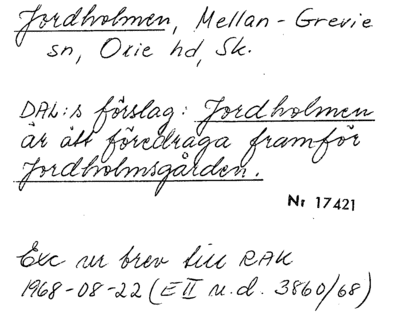 Jordholmen, Mellan-Grevie
sn, Oxie hd, Sk.
DAL:s förslag: Jordholmen
är att föredraga framför
Jordholmsgården.
Nr 17421
Exc ur brev till RAK
1968-08-22 (E II u.d. 3860/68)